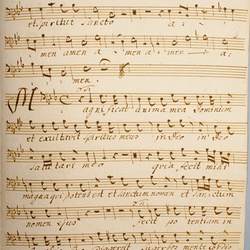 et spiritui sancto a
men amen a men a men a
men.
Magnificat anima mea Dominum
et exultavit spiritus meus in Deo in Deo
salutari meo quia fecit mihi
magna qui potens est et sanctum nomen et sanctum
nomen ejus fecit potentiam in
dispersit superbos mente